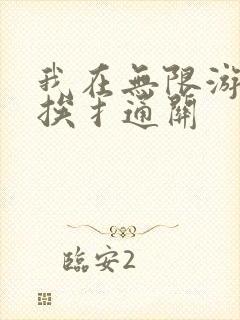 我在無限游
挨扌通關
臨安2